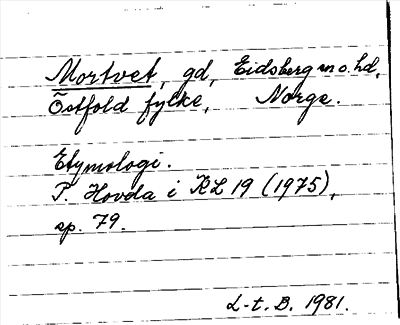 Mortvet, gd, Eidsberg sn o. hd,
Östfold fylke, Norge.
Etymologi.
P. Hovda i KL 19 (1975),
sp. 79.
L-t. B. 1981.